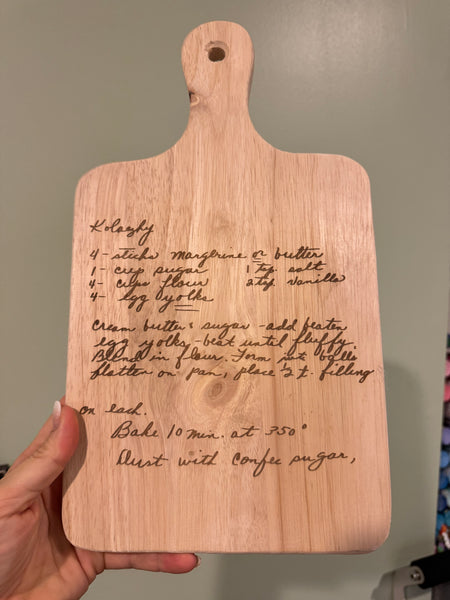 Kolaczhy
4- sticks margerine or butter
1- cup sugar 1 tsp. salt
4- cups flour 2 tsp. vanilla
4- egg yolks
Cream butter & sugar - add beaten
egg yolks - beat until fluffy.
Blend in flour. Form into balls
flatten on pan, place ½ t. filling
on each.
Bake 10 min. at 350°
Dust with confec sugar,